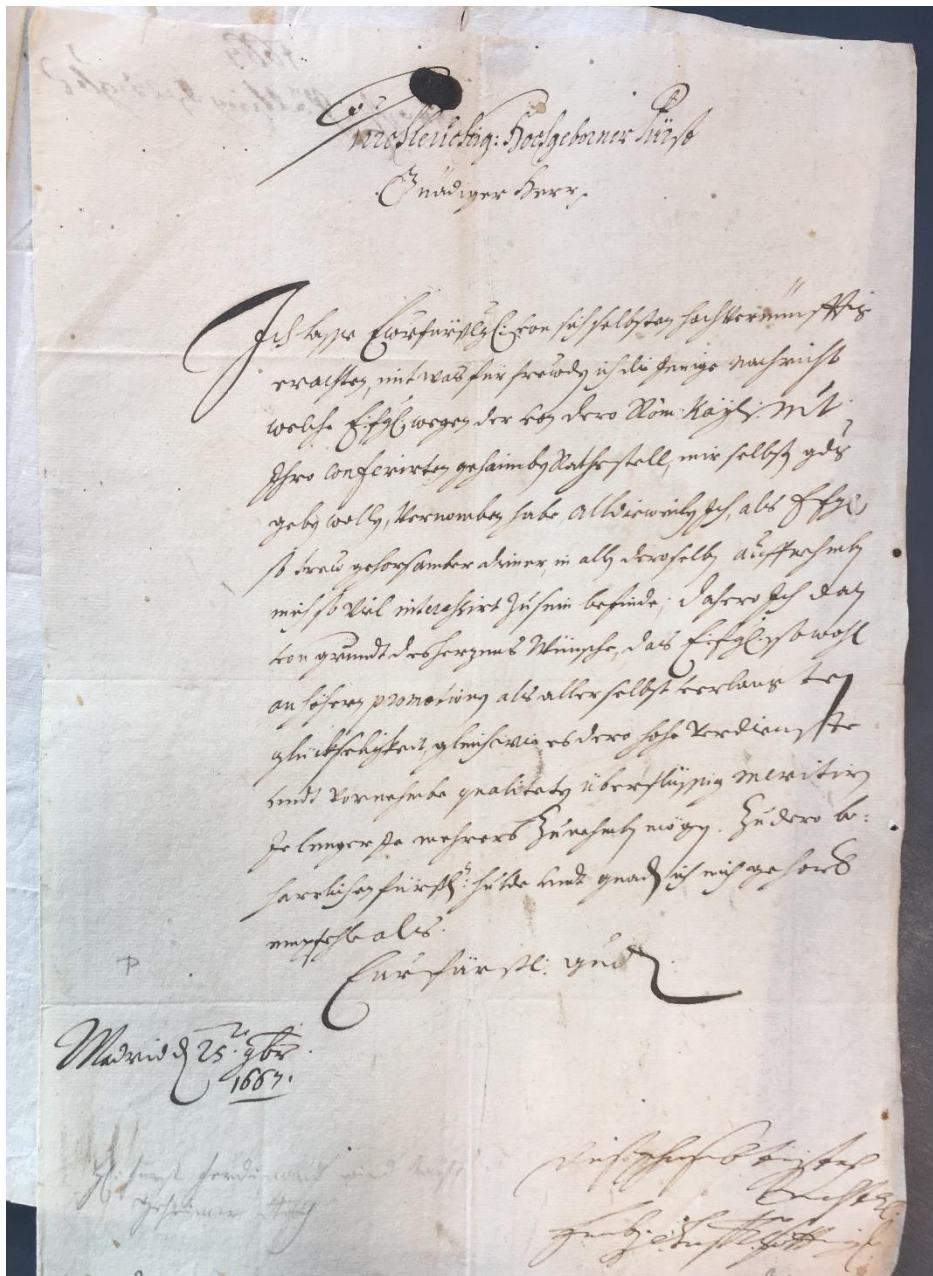 Durchleuchtig: Hochgeborner Fürst
Gnediger Herr,
Ich lasse Eur fürstl: von sich selbsten hochvernünfftig
erachten, mit was für freudt ich die jenige nachricht
welche E: fgl: wegen der von dero Röm: Kayl: Mt:
Ihro conferirten gehaimben Rathsstell, mir selbst gdig
geben wollen, vernomben habe, alldieweilen Ich, als E fgl
so treu gehorsamber diener, in allen deroselben auffnehmben
mich so vil interessirt zu sein befinde; dahero Ich dan
von grundt des herzens Wünsche, das E: fgl: so wohl
an höhern promotionen als aller selbst verlangten
glückhseligkeit, gleich wie es dero hohe verdienste
undt vornehmbe qualiteten überflüssig meritirn
Je lenger Je mehrers zunehmben mögen. Zu dero be:
harrlichen fürstl: hulde undt gnaden ich mich gehorsamb
empfehle als.
Eur fürstl: gnd
Madrid d 25. 9br.
1667.
H. Fürst Ferdinand wird
geheimer Rath